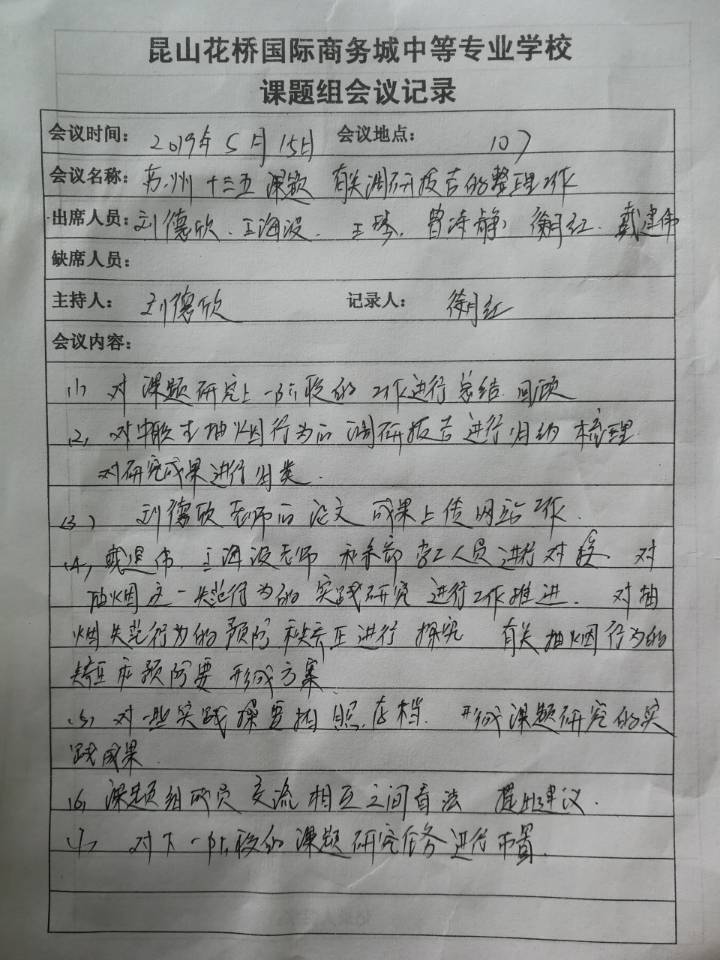 昆山花桥国际商务城中等专业学校
课题组会议记录
会议时间: 2019年5月15日 会议地点: 107
会议名称: 苏州十三五课题 有关调研报告的整理工作
出席人员: 刘德欣、王海波、王琴、曾诗静、衡月红、戴建伟
缺席人员:
主持人: 刘德欣 记录人: 衡月红
会议内容:
(1) 对课题研究上一阶段的工作进行总结回顾
(2) 对中职生抽烟行为的调研报告进行归纳梳理
对研究成果进行归类.
(3) 刘德欣老师的论文成果上传网站工作.
(4) 戴建伟、王海波老师和系部学工人员进行对接 对
抽烟这一失范行为的实践研究进行工作推进. 对抽
烟失范行为的预防和矫正进行探究 有关抽烟行为的
矫正和预防要形成方案
(5) 对一些实践探要拍照存档. 形成课题研究的实
践成果.
(6) 课题组成员交流相互之间看法 提出建议.
(7) 对下一阶段的课题研究任务进行布置.